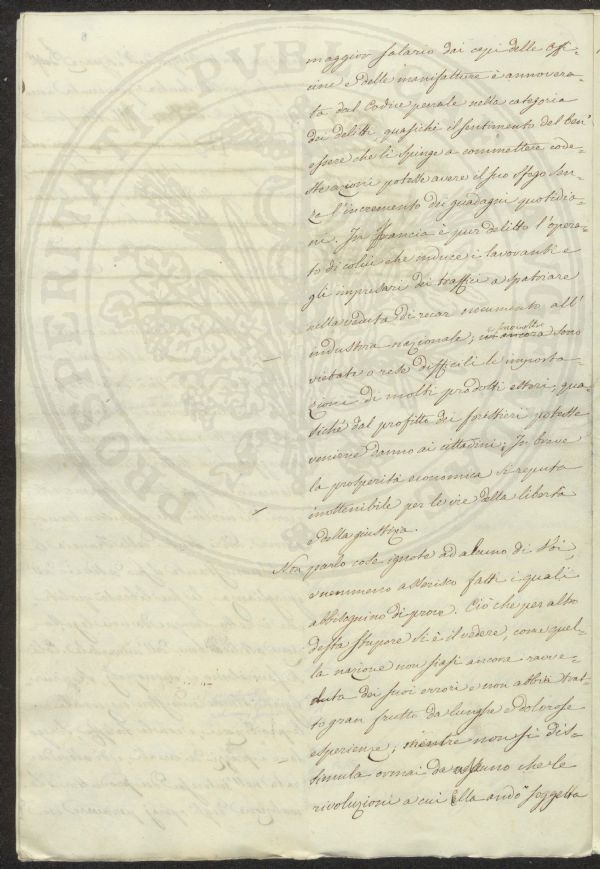 maggior salario dai capi delle offi-
cine e delle manifatture è annovera-
ta dal Codice penale nella categoria
dei delitti, quasichè il sentimento del ben'
essere che li spinge a commettere code-
ste azioni potesse avere il suo sfogo sen-
za l'incremento dei guadagni quotidia-
ni. In Francia è pur delitto l'opera-
to di colui che induce i lavoranti e
gli impresari dei traffici a spatriare
nella veduta di recar nocumento all'
industria nazionale; inoltre sono
vietati o resi difficili le importa-
zioni di molti prodotti esteri, qua-
sichè dal profitto dei forestieri potesse
venirne danno ai cittadini; In breve
la prosperità economica si reputa
inottenibile per le vie della libertà
e della giustizia.
Non parlo cose ignote ad alcuno di Voi
e nemmeno asserisco fatti i quali
abbisognino di prove. Ciò che per altro
desta stupore si è il vedere come quel-
la nazione non siasi ancora ravve-
duta dei suoi errori e non abbia trat-
to gran frutto da lunghe e dolorose
esperienze; mentre non si dis-
simula ormai da alcuno che le
rivoluzioni a cui ella andò soggetta
PROSPERITATI PUBLICAE